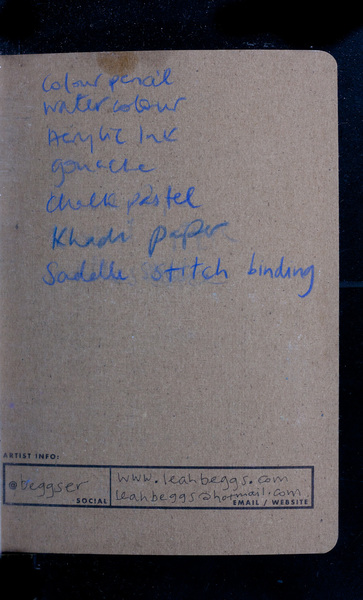 colour pencil
watercolour
Acrylic Ink
gouache
chalk pastel
Khadi paper
Saddle stitch binding
ARTIST INFO:
@beggser
SOCIAL
www.leahbeggs.com
leahbeggs@hotmail.com
EMAIL / WEBSITE